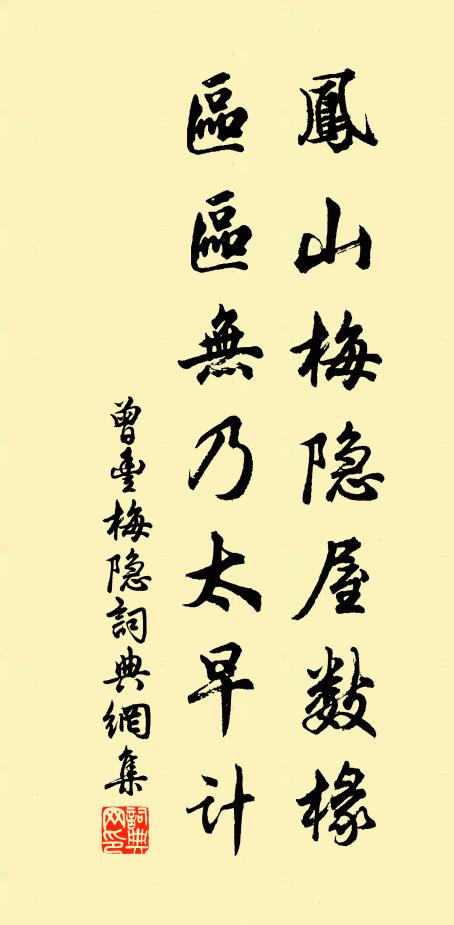 鳳山梅隐屋数椽
區區無乃太早计
曾豐梅隐詞典網集
詞典網印